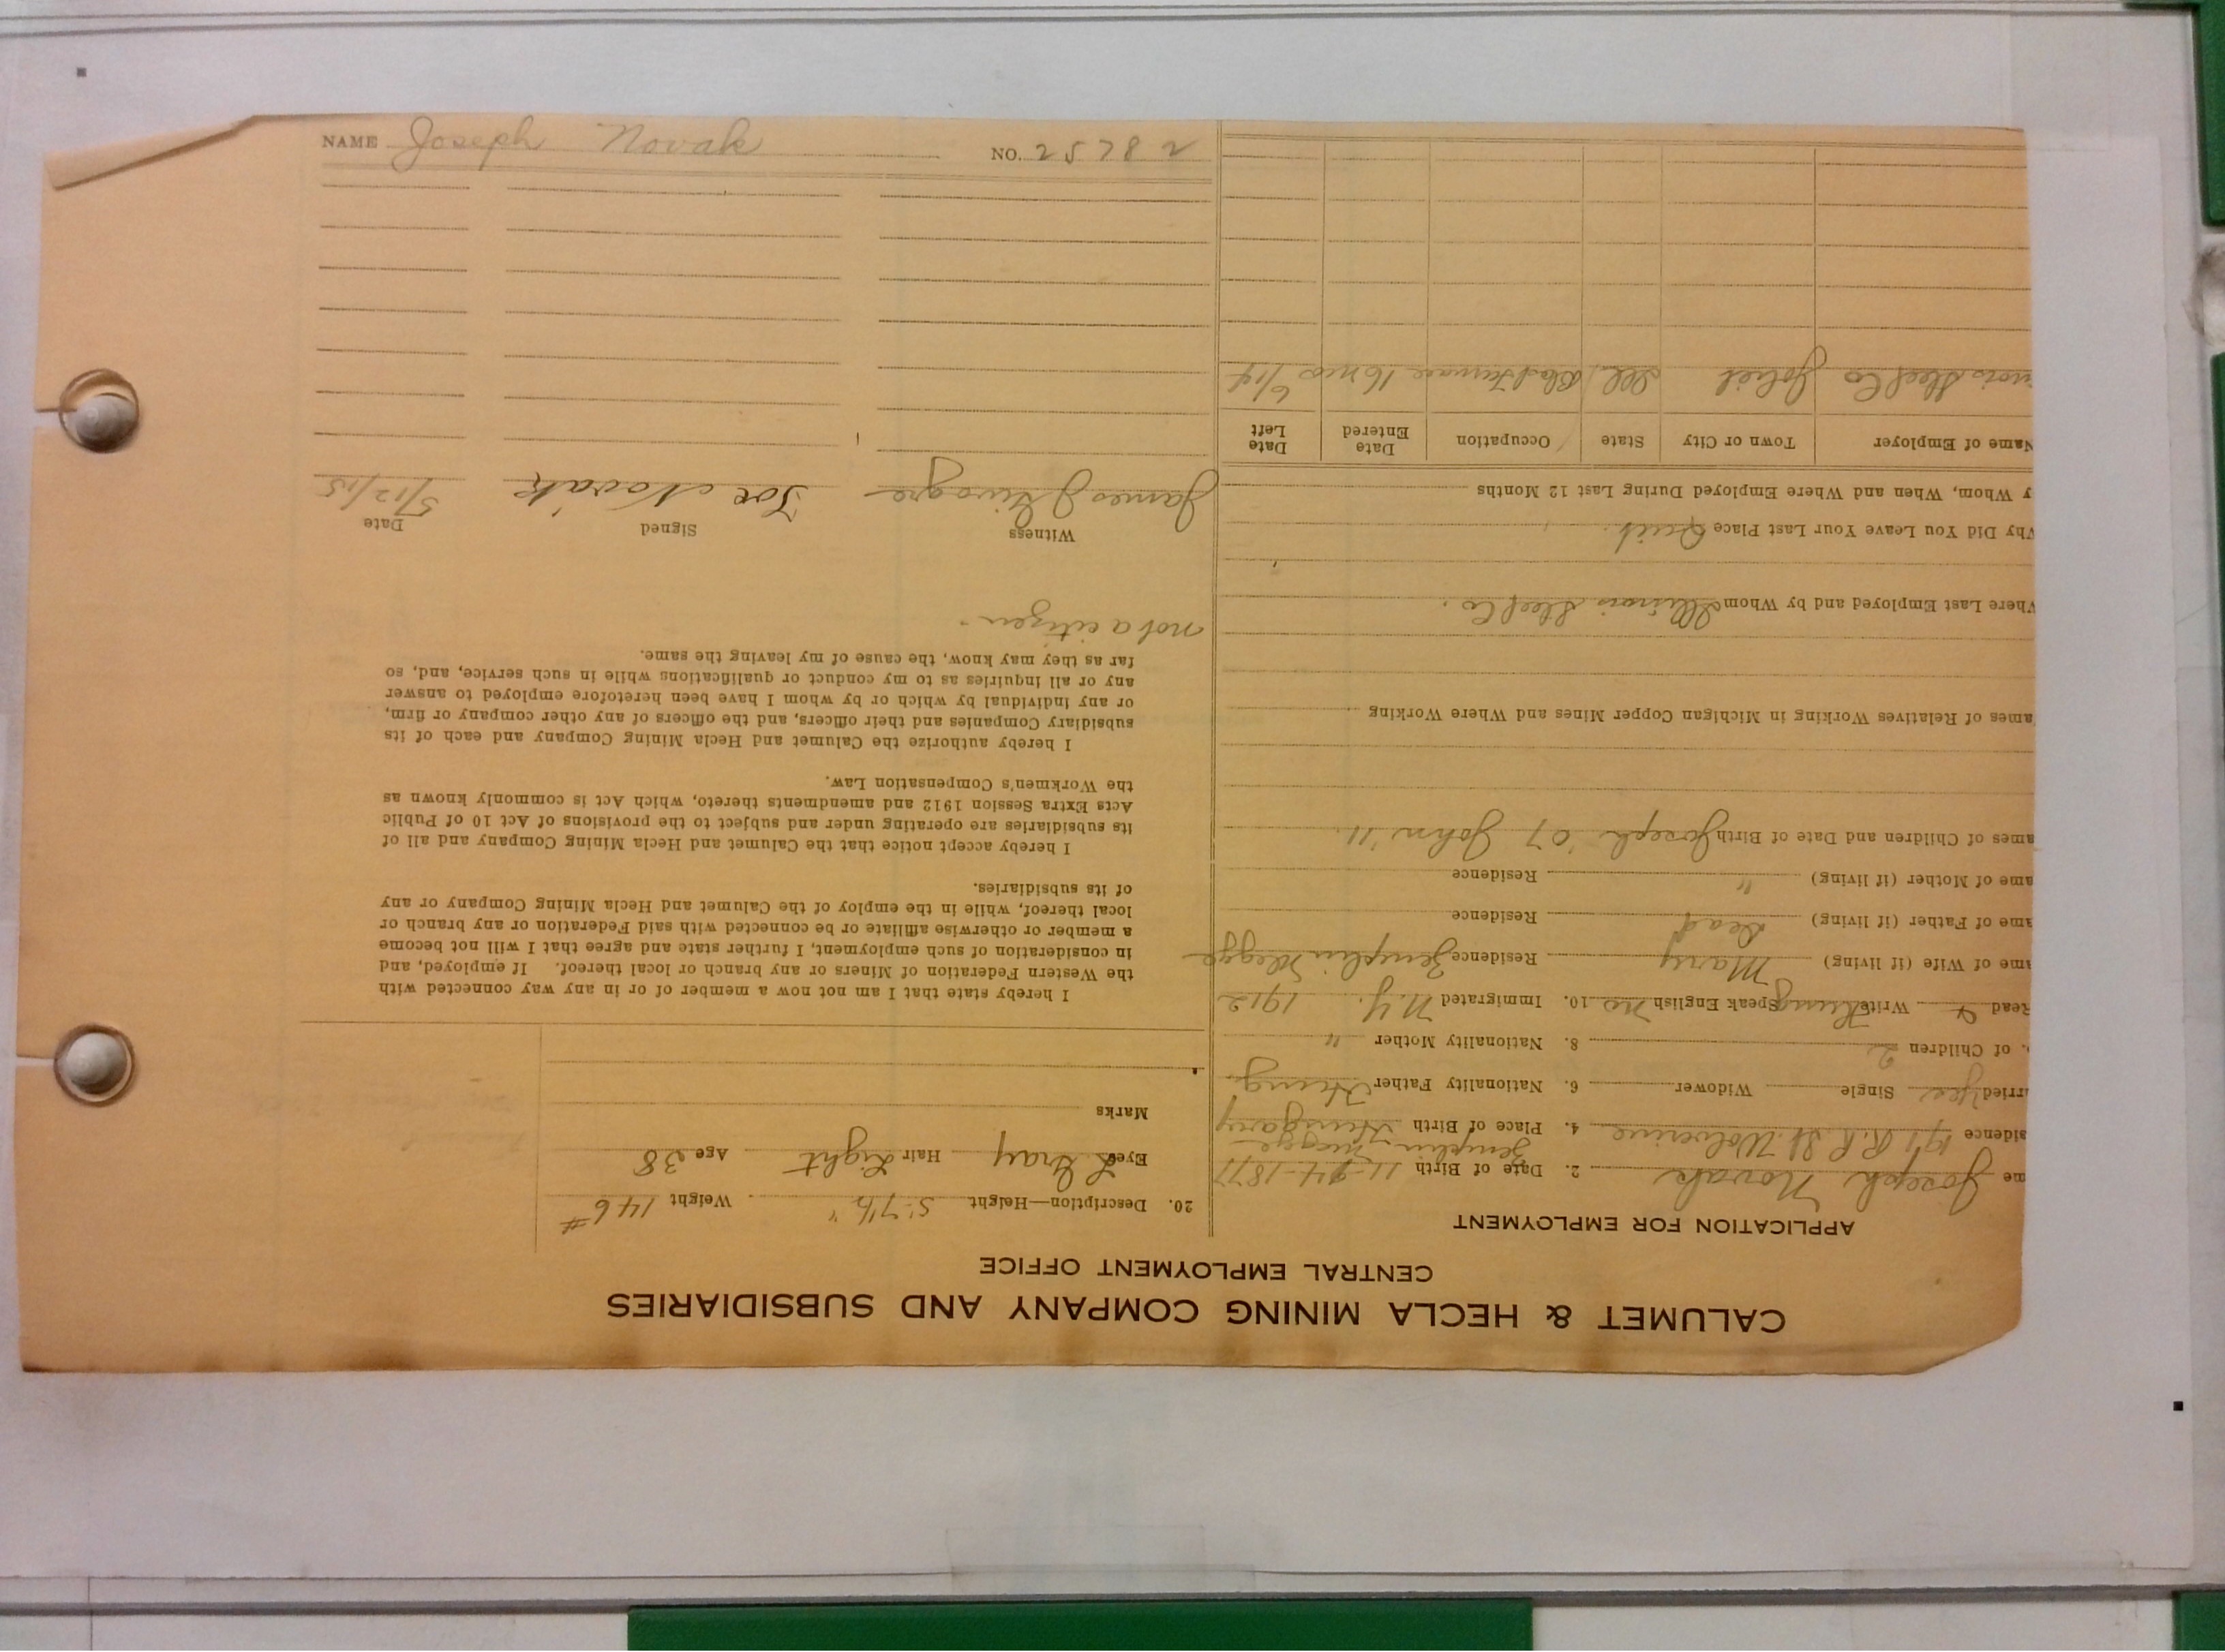 CALUMET & HECLA MINING COMPANY AND SUBSIDIARIES
CENTRAL EMPLOYMENT OFFICE
APPLICATION FOR EMPLOYMENT
me Joseph Novak 2. Date of Birth 1877
sidence R.R. St. Wolverine 4. Place of Birth Hungary
rried Yes Single Widower 6. Nationality Father Hung.
. of Children 2 8. Nationality Mother "
Read Write Hung Speak English no 10. Immigrated N.Y. 1912
ame of Wife (if living) Mary Residence Zemplin Megye
ame of Father (if living) Dead Residence
ame of Mother (if living) " Residence
ames of Children and Date of Birth Joseph '07 John '11
ames of Relatives Working in Michigan Copper Mines and Where Working
here Last Employed and by Whom Illinois Steel Co.
hy Did You Leave Your Last Place Quit.
y Whom, When and Where Employed During Last 12 Months
Name of Employer Town or City State Occupation Date Entered Date Left
inois Steel Co Joliet Ill Blast Furnace 16 mos 6/14
20. Description—Height 5' 7½" Weight 146 #
Eyes L. Gray Hair Light Age 38
Marks
I hereby state that I am not now a member of or in any way connected with
the Western Federation of Miners or any branch or local thereof. If employed, and
in consideration of such employment, I further state and agree that I will not become
a member or otherwise affiliate or be connected with said Federation or any branch or
local thereof, while in the employ of the Calumet and Hecla Mining Company or any
of its subsidiaries.
I hereby accept notice that the Calumet and Hecla Mining Company and all of
its subsidiaries are operating under and subject to the provisions of Act 10 of Public
Acts Extra Session 1912 and amendments thereto, which Act is commonly known as
the Workmen's Compensation Law.
I hereby authorize the Calumet and Hecla Mining Company and each of its
subsidiary Companies and their officers, and the officers of any other company or firm,
or any individual by which or by whom I have been heretofore employed to answer
any or all inquiries as to my conduct or qualifications while in such service, and, so
far as they may know, the cause of my leaving the same.
not a citizen.
Witness Signed Date
James J Joe Novak 5/12/15
NAME Joseph Novak NO. 25782